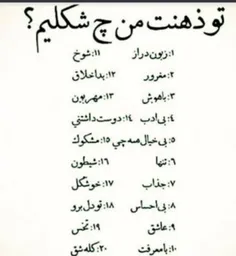 تو ذهنت من چ شکلیم؟
۱: زبون دراز ۱۱: شوخ
۲: مغرور ۱۲: بداخلاق
۳: باهوش ۱۳: مهربون
۴: بی ادب ۱۴: دوست داشتنی
۵: بی خیال همه چی ۱۵: مشکوک
۶: تنها ۱۶: شیطون
۷: جذاب ۱۷: خوشگل
۸: بی احساس ۱۸: تودل برو
۹: عاشق ۱۹: تخس
۱۰: بامعرفت ۲۰: کله شق